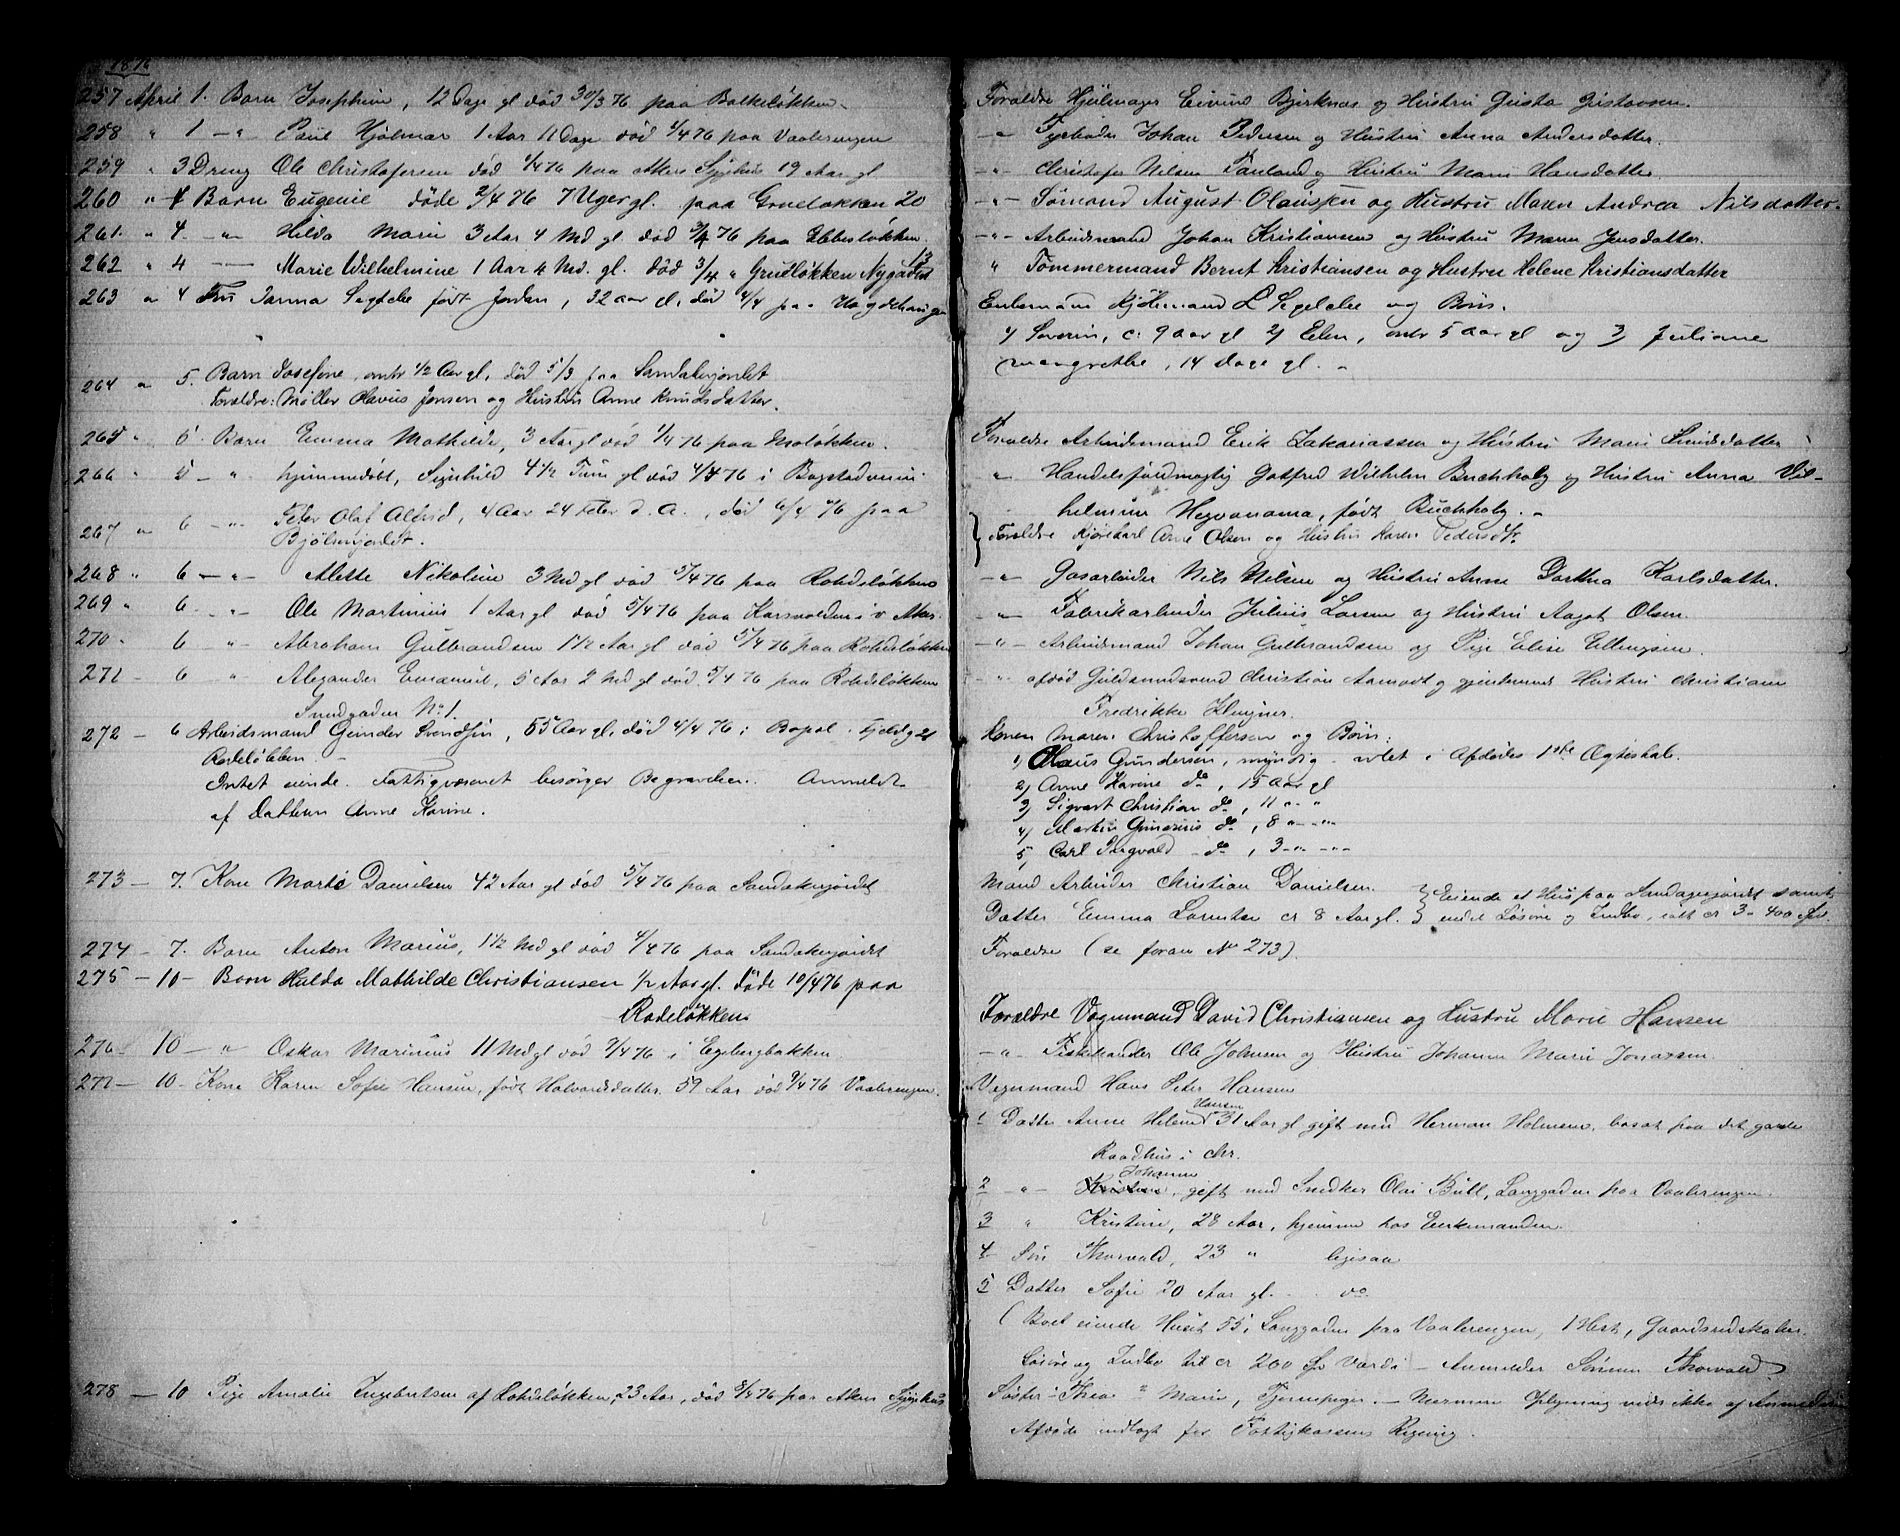 1876
257 April 1. Barn Josephine, 12 Dage gl død 30/3 76 paa Balkeløkken.
258 " 1 — " Paul Hjalmar 1 Aar 11 Dage død 1/4 76 paa Vaalerengen
259 " 3 Dreng Ole Christofersen død 1/4 76 paa Akers Sygehus 19 Aar gl
260 " 4 Barn Eugenie døde 2/4 76 7 Uger gl. paa Grueløkken 20
261. " 4. — " Hilda Marie 3 Aar 4 Md gl død 3/4 76 paa Ebbesløkken
262 " 4 — Marie Wilhelmine 1 Aar 4 Md. gl. død 3/4 " Grueløkken Nygaden 13
263 " 4 Fru Janna Segelcke født Jordan, 32 aar gl, død 2/4 paa Ullevoldhaugen
264 " 5. Barn Josefine, omtr 1/2 Aar gl, død 5/3 paa Sandakerjordet
Forældre: Møller Olavius Jensen og Hustru Anne Knudsdatter.
265 " 5. Barn Emma Mathilde, 3 Aar gl død 1/4 76 paa Moløkken.
266 " 5 — " hjemmedøbt, Signhild 4 1/2 Time gl død 4/4 76 i Bogstadveien
267 " 6 — " Peter Olaf Alfred, 4 Aar 24 Feber d. A., død 6/4 76 paa
Bjølsenjordet.
268 " 6 — " Alette Nikoline 3 Md gl død 5/4 76 paa Rodeløkken
269 " 6. — " Ole Martinius 1 Aar gl død 5/4 76 paa Karsvolden i V Aker.
270 " 6 " Abraham Gulbrandsen 1 1/2 Aar gl død 5/4 76 paa Rodeløkken
271 — 6 " Alexander Emanuel, 5 Aar 2 Md gl død 5/4 76 paa Rodeløkken
Snedgaden No 1.
272 — 6 Arbeidsmand Gunder Svendsen, 55 Aar gl, død 4/4 76 i Bopæl Fjeldgd
Rodeløkken. —
Intet eiende. Fattigvæsenet besørger Begravelsen. Anmeldt
af Datteren Anne Karine.
273 — 7. Kone Marte Danielsen 42 Aar gl død 5/4 76 paa Sandakerjordet
274 — 7. Barn Anton Marius, 1 1/2 Md gl død 4/4 76 paa Sandakerjordet
275 — 10 — Barn Hulda Mathilde Christiansen 1/2 Aar gl. døde 10/4 76 paa
Rodeløkken.
276 — 10 — " Oskar Marinius 11 Md gl død 9/4 76 i Egebergbakken
277 — 10. Kone Karen Sofie Hansen, født Halvorsdatter. 59 Aar død 9/4 76 Vaalerengen.
278 — 10 Pige Amalie Ingebertsen af Rodeløkken, 23 Aar, død 8/4 76 paa Akers Sygehus
Forældre Hjulmager Eivind Bjerknes og Hustru Gusta Gustavsen.
— " Johan Pedersen og Hustru Anna Andersdatter.
— " Christofer Nilsen Fauland og Hustru Mari Hansdatter.
— " — Sømand August Olaussen og Hustru Maren Andrea Nilsdatter.
— " — Arbeidsmand Johan Kristiansen og Hustru Maren Jensdatter.
" Tømmermand Bernt Kristiansen og Hustru Helene Kristiansdatter
Enkemand Kjøbmand L Segelcke og Børn.
1) Severin, c. 9 aar gl 2) Elen, omtr 5 aar gl og 3) Juliane
Mangrethe, 14 Dage gl. —
Forældre Arbeidsmand Erik Zakariassen og Hustru Mari Svendsdatter
" Handelsfuldmægtig Gotfred Wilhelm Buchholz og Hustru Anna Vil-
helmine, født Buchholz. —
Forældre Kjørekarl Arne Olsen og Hustru Karen Pedersdtr.
— " Gasarbeider Nils Nilsen og Hustru Anne Dorthea Karlsdatter.
— " Fabrikarbeider Julius Larsen og Hustru Aagot Olsen.
— " — Arbeidsmand Johan Gulbrandsen og Pige Elise Ellingsen.
— " afdød Guldsmedsvend Christian Aamodt og gjenlevende Hustru Christiane
Fredrikke Klingner.
Konen Maren Christoffersen og Børn:
1) Olaus Gundersen, myndig, avlet i Afdødes 1ste Ægteskab.
2) Anne Karine do, 15 aar gl
3) Sigvart Christian do, 11 " "
4) Martin Gunerius do, 8 " — "
5) Carl Ingvald — do, 3 — " — " —
Mand Arbeider Christian Danielsen.
Datter Emma Lovise cr 8 Aar gl. } Eiende et Hus paa Sandagerjordet samt
endel Løsøre og Indbo, ialt cr 3-400 Spd.
Forældre (se foran No 273).
Forældre Vognmand David Christiansen og Hustru Marie Hansen
— " — Fiskehandler Ole Johnsen og Hustru Johanne Marie Jonassen.
Vognmand Hans Peter Hansen
1 Datter Anne Helene Hansen 31 Aar gl gift med Herman Holmsen, bosat paa det gamle
Raadhus i Chr.
2 — " — Kristine Johanne, gift med Snedker Olai Bull, Langgaden paa Vaalerengen.
3 " Kristine, 28 Aar, hjemme hos Enkemanden.
4 Søn Thorvald, 23 " ligesaa
5 Datter Sofie 20 Aar gl. — do.
(Boet eiende Huset 55 i Langgaden paa Vaalerengen, 1 Hest, Gaardsredskaber.
Løsøre og Indbo til cr 200 Spd Værdi — Anmelder Sønnen Thorvald)
Søster: Thea " Marie, Tjenestepiger. — Nærmere Oplysning vides ikke af Anmelderen
Afdøde indlagt for Fattigkassens Regning.